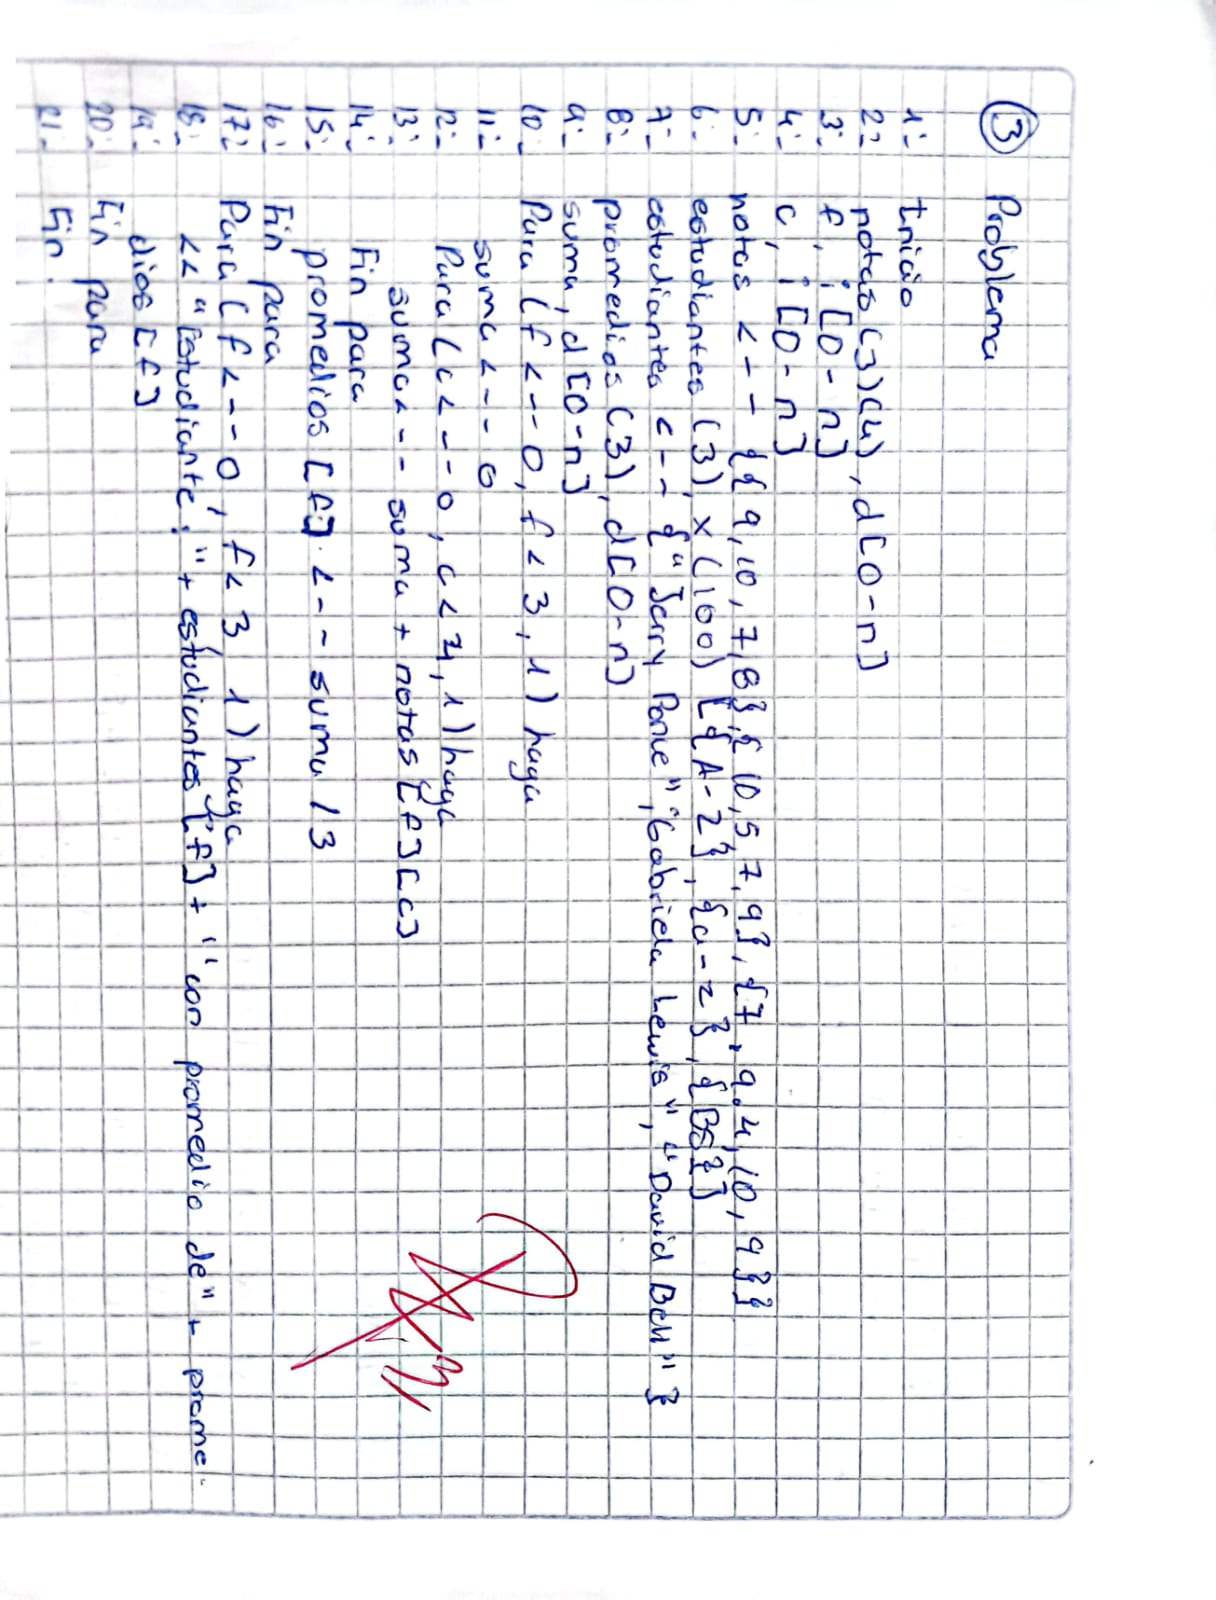 3 Problema
1:- Inicio
2: notas (3)(4), d[0-n]
3: f, i[0-n]
4:- c, i[0-n]
5: notas <-- {{9,10,7,8},{10,5,7,9},{7,9.4,10,9}}
6: estudiantes (3), x(100) [{A-Z},{a-z},{BS}]
7:- estudiantes <-- {"Jerry Ponce","Gabriela Lewis","David Bell"}
8:- promedios (3), d[0-n]
9:- suma, d[0-n]
10- Para (f <-- 0, f < 3, 1) haga
11:- suma <-- 0
12:- Para (c <-- 0, c < 4, 1) haga
13: suma <-- suma + notas [f][c]
14: Fin para
15: promedios [f] <-- suma / 3
16: Fin para
17: Para (f <-- 0, f < 3, 1) haga
18: << "Estudiante: " + estudiantes [f] + " con promedio de" + prome-
19: dios [f]
20: Fin para
21- Fin.